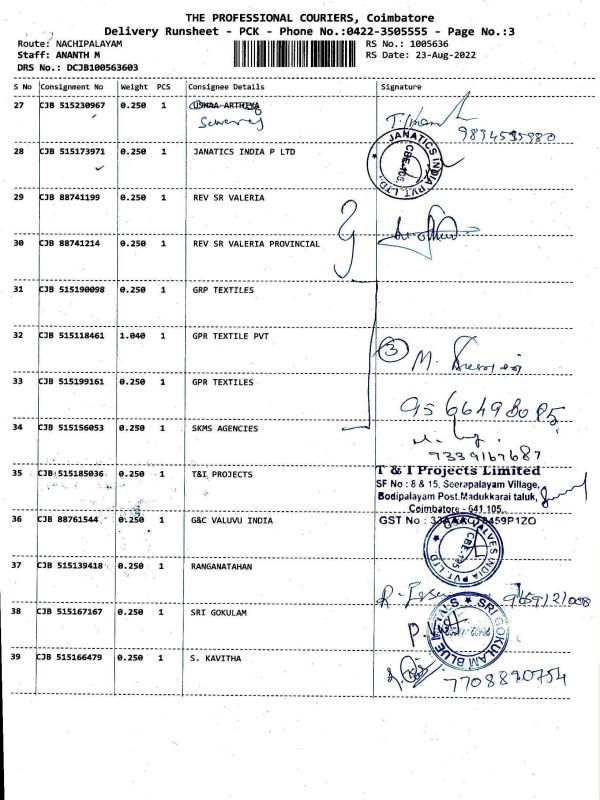 THE PROFESSIONAL COURIERS, Coimbatore
Delivery Runsheet - PCK - Phone No.:0422-3505555 - Page No.:3
Route: NACHIPALAYAM RS No.: 1005636
Staff: ANANTH M RS Date: 23-Aug-2022
DRS No.: DCJB100563603
S No Consignment No Weight PCS Consignee Details Signature
27 CJB 515230967 0.250 1 USHAA ARTHEYA
9894595980
28 CJB 515173971 0.250 1 JANATICS INDIA P LTD
JANATICS INDIA PVT. LTD.
CBE-105
29 CJB 88741199 0.250 1 REV SR VALERIA
30 CJB 88741214 0.250 1 REV SR VALERIA PROVINCIAL
31 CJB 515190098 0.250 1 GRP TEXTILES
32 CJB 515118461 1.040 1 GPR TEXTILE PVT
3 M.
33 CJB 515199161 0.250 1 GPR TEXTILES
34 CJB 515156053 0.250 1 SKMS AGENCIES
9339167687
35 CJB 515185036 0.250 1 T&I PROJECTS
T & I Projects Limited
SF No : 8 & 15, Seerapalayam Village,
Bodipalayam Post.Madukkarai taluk,
Coimbatore - 641 105.
GST No :
36 CJB 88761544 0.250 1 G&C VALUVU INDIA
VALVES INDIA PVT LTD
CBE-105
37 CJB 515139418 0.250 1 RANGANATAHAN
38 CJB 515167167 0.250 1 SRI GOKULAM
SRI GOKULAM BLUE
39 CJB 515166479 0.250 1 S. KAVITHA
7708890754